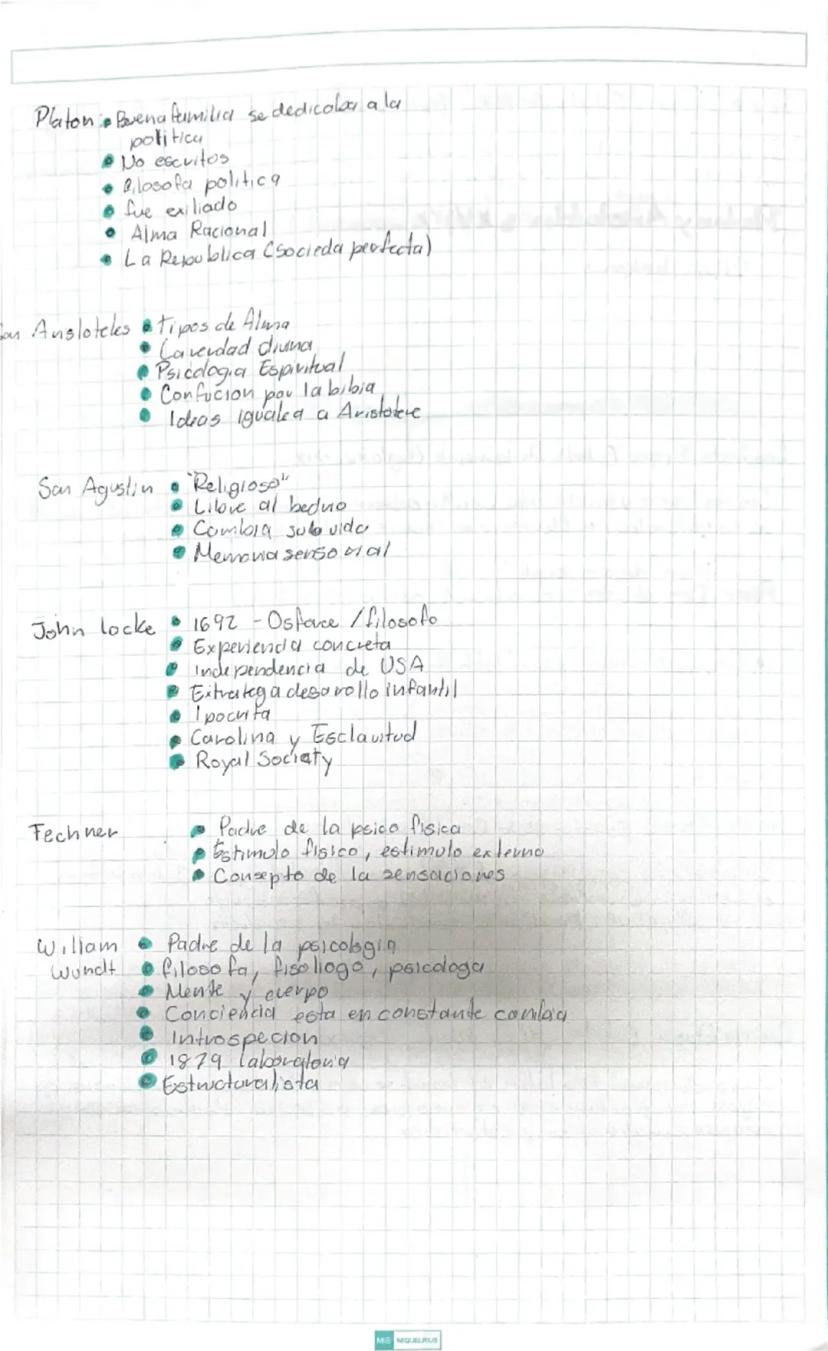 Platon: • Buena familia se dedicaba a la
politica
• No escritos
• filosofa politica
• fue exiliado
• Alma Racional
• La Republica (socieda perfecta)
Aristoteles • Tipos de Alma
• La verdad divina
• Psicologia Espiritual
• Confucion por la bibia
• Ideas iguales a Aristotele
San Agustin • "Religioso"
• Libre al beduo
• Cambia su vida
• Memoria sensorial
John locke • 1692 - Osforce / filosofo
• Experiencia concreta
• independencia de USA
• Extratega desarollo infantil
• Ipocrita
• Carolina y Esclavitud
• Royal Sociaty
Fechner • Padre de la psico fisica
• Estimulo fisico, estimulo externo
• Consepto de la sensaciones
William • Padre de la psicologia
Wundt • filosofa, fisoliogo, psicologa
• Mente y cuerpo
• Conciencia esta en constante cambia
• Introspecion
• 1879 laboratoria
• Estructuralista
MIQUELRIUS